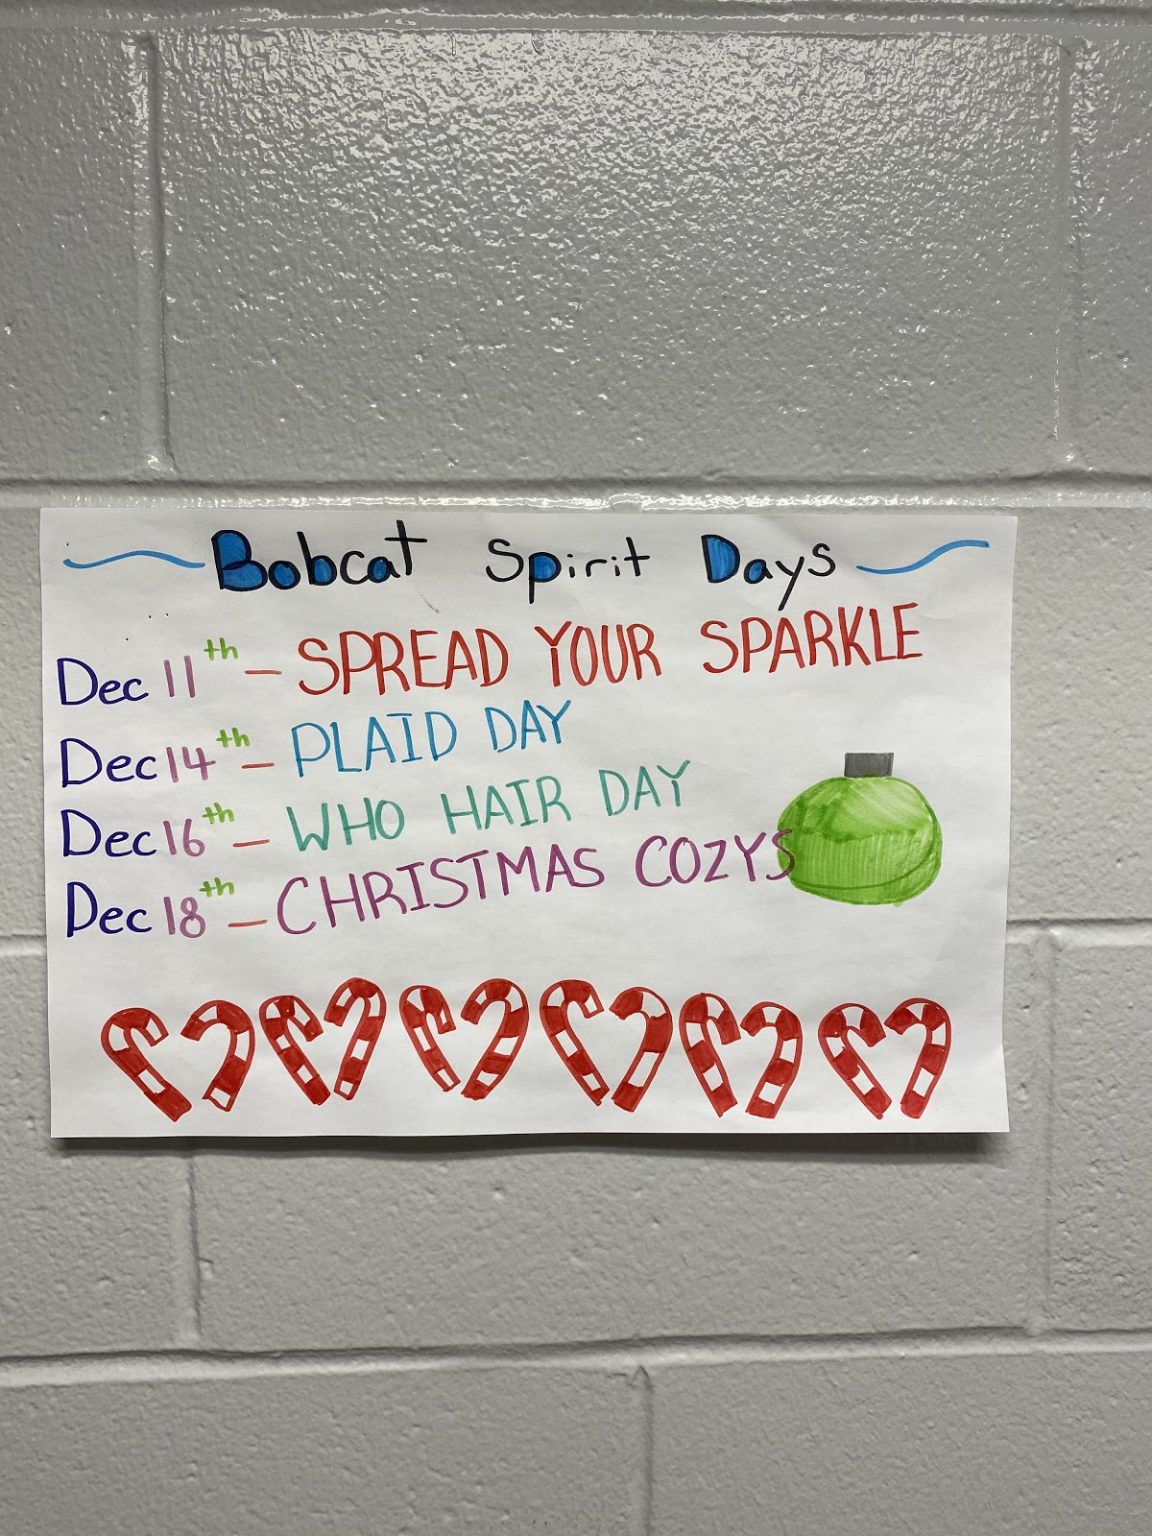 Bobcat Spirit Days
Dec 11th - SPREAD YOUR SPARKLE
Dec 14th - PLAID DAY
Dec 16th - WHO HAIR DAY
Dec 18th - CHRISTMAS COZYS